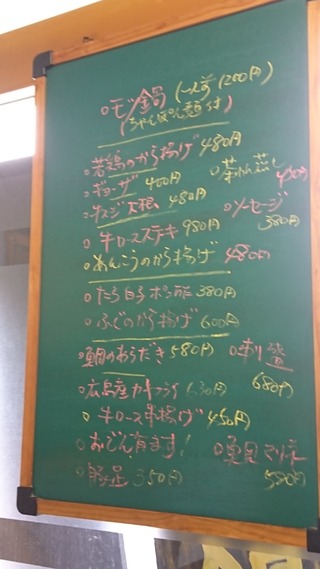 ○モツ鍋(一人前1200円)
(ちゃんぽん麺付)
○若鶏のから揚げ 480円
○茶わん蒸し 450円
○ギョーザ 400円
○牛スジ大根 480円
○ソーセージ 380円
○牛ロースステキ 980円
○あんこうのから揚げ 480円
○たら白子ポン酢 380円
○ふぐのから揚げ 600円
○鯛のあらだき 580円
○刺盛 680円
○広島産カキフライ 630円
○牛ロース串揚げ 450円
○おでん有ます!
○豚足 350円
580円